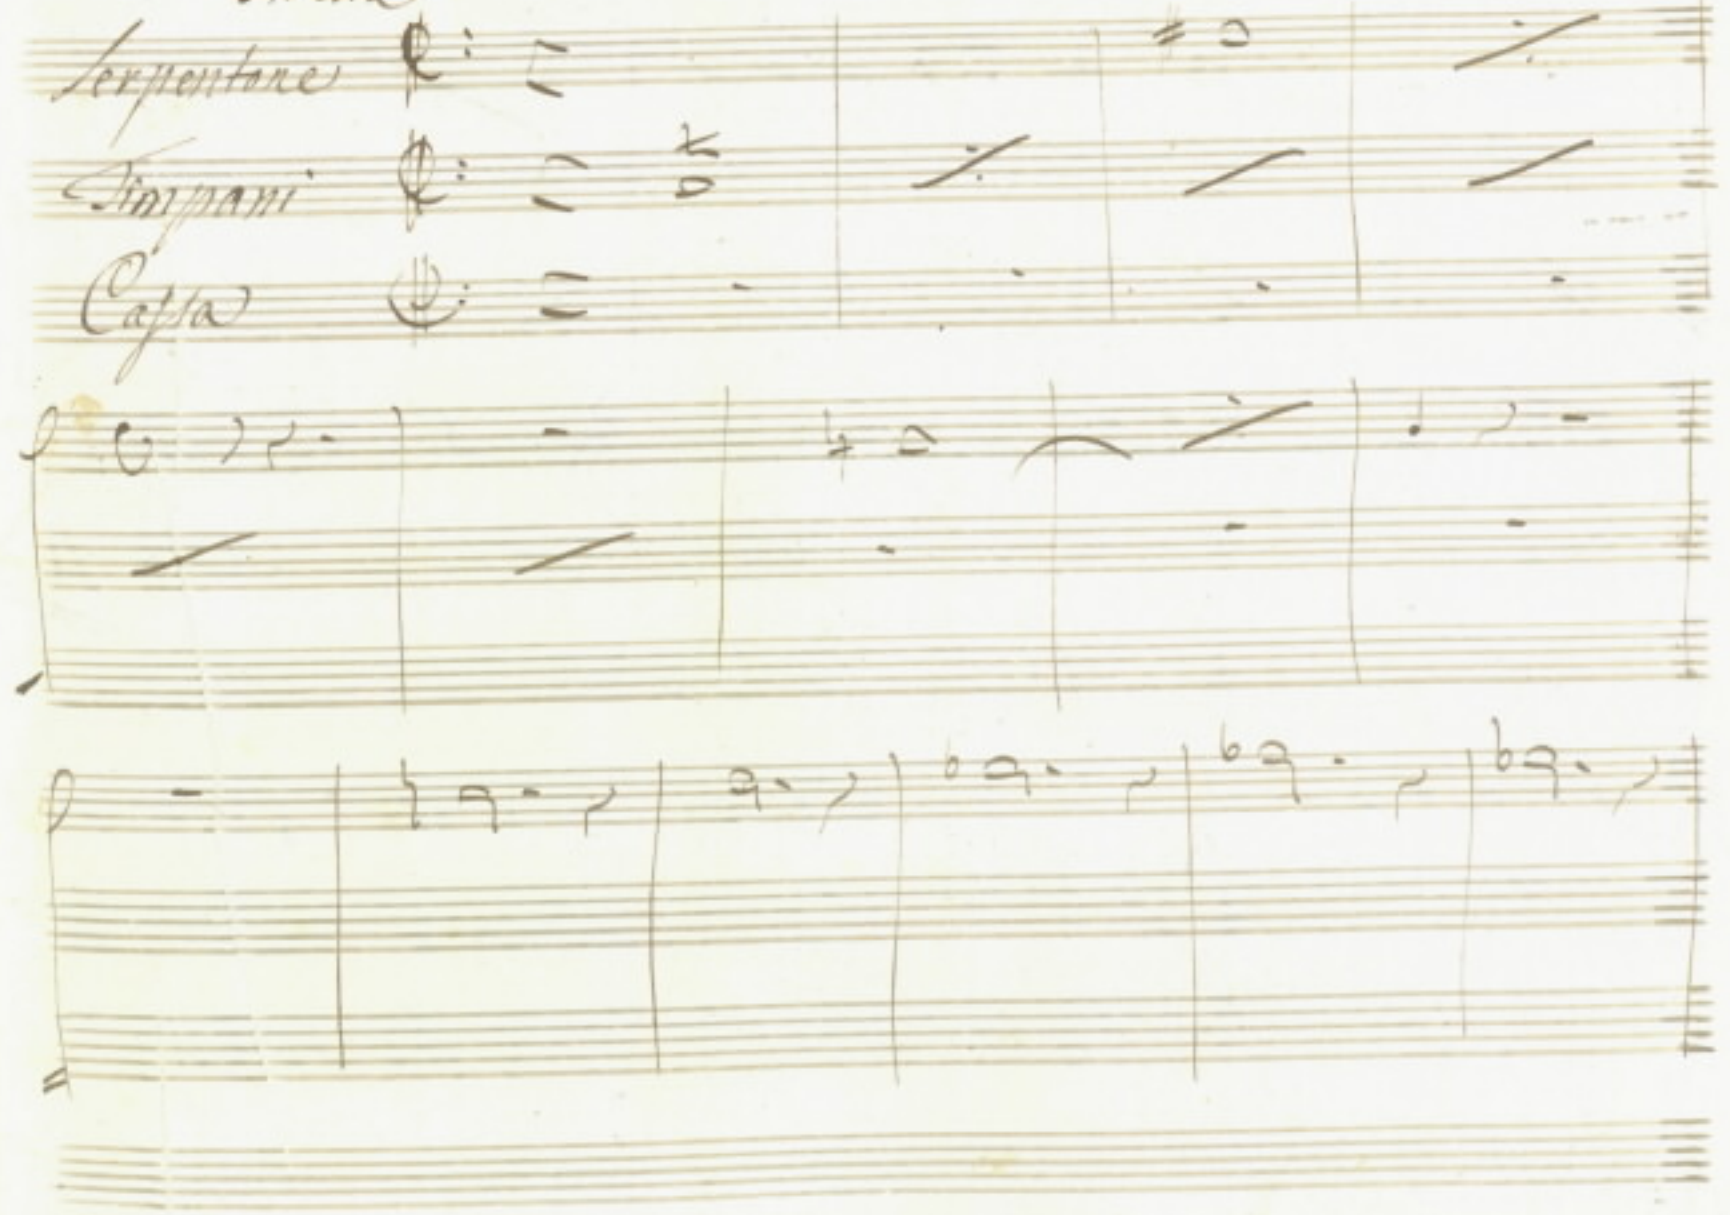 Serpentone
Timpani
Cassa